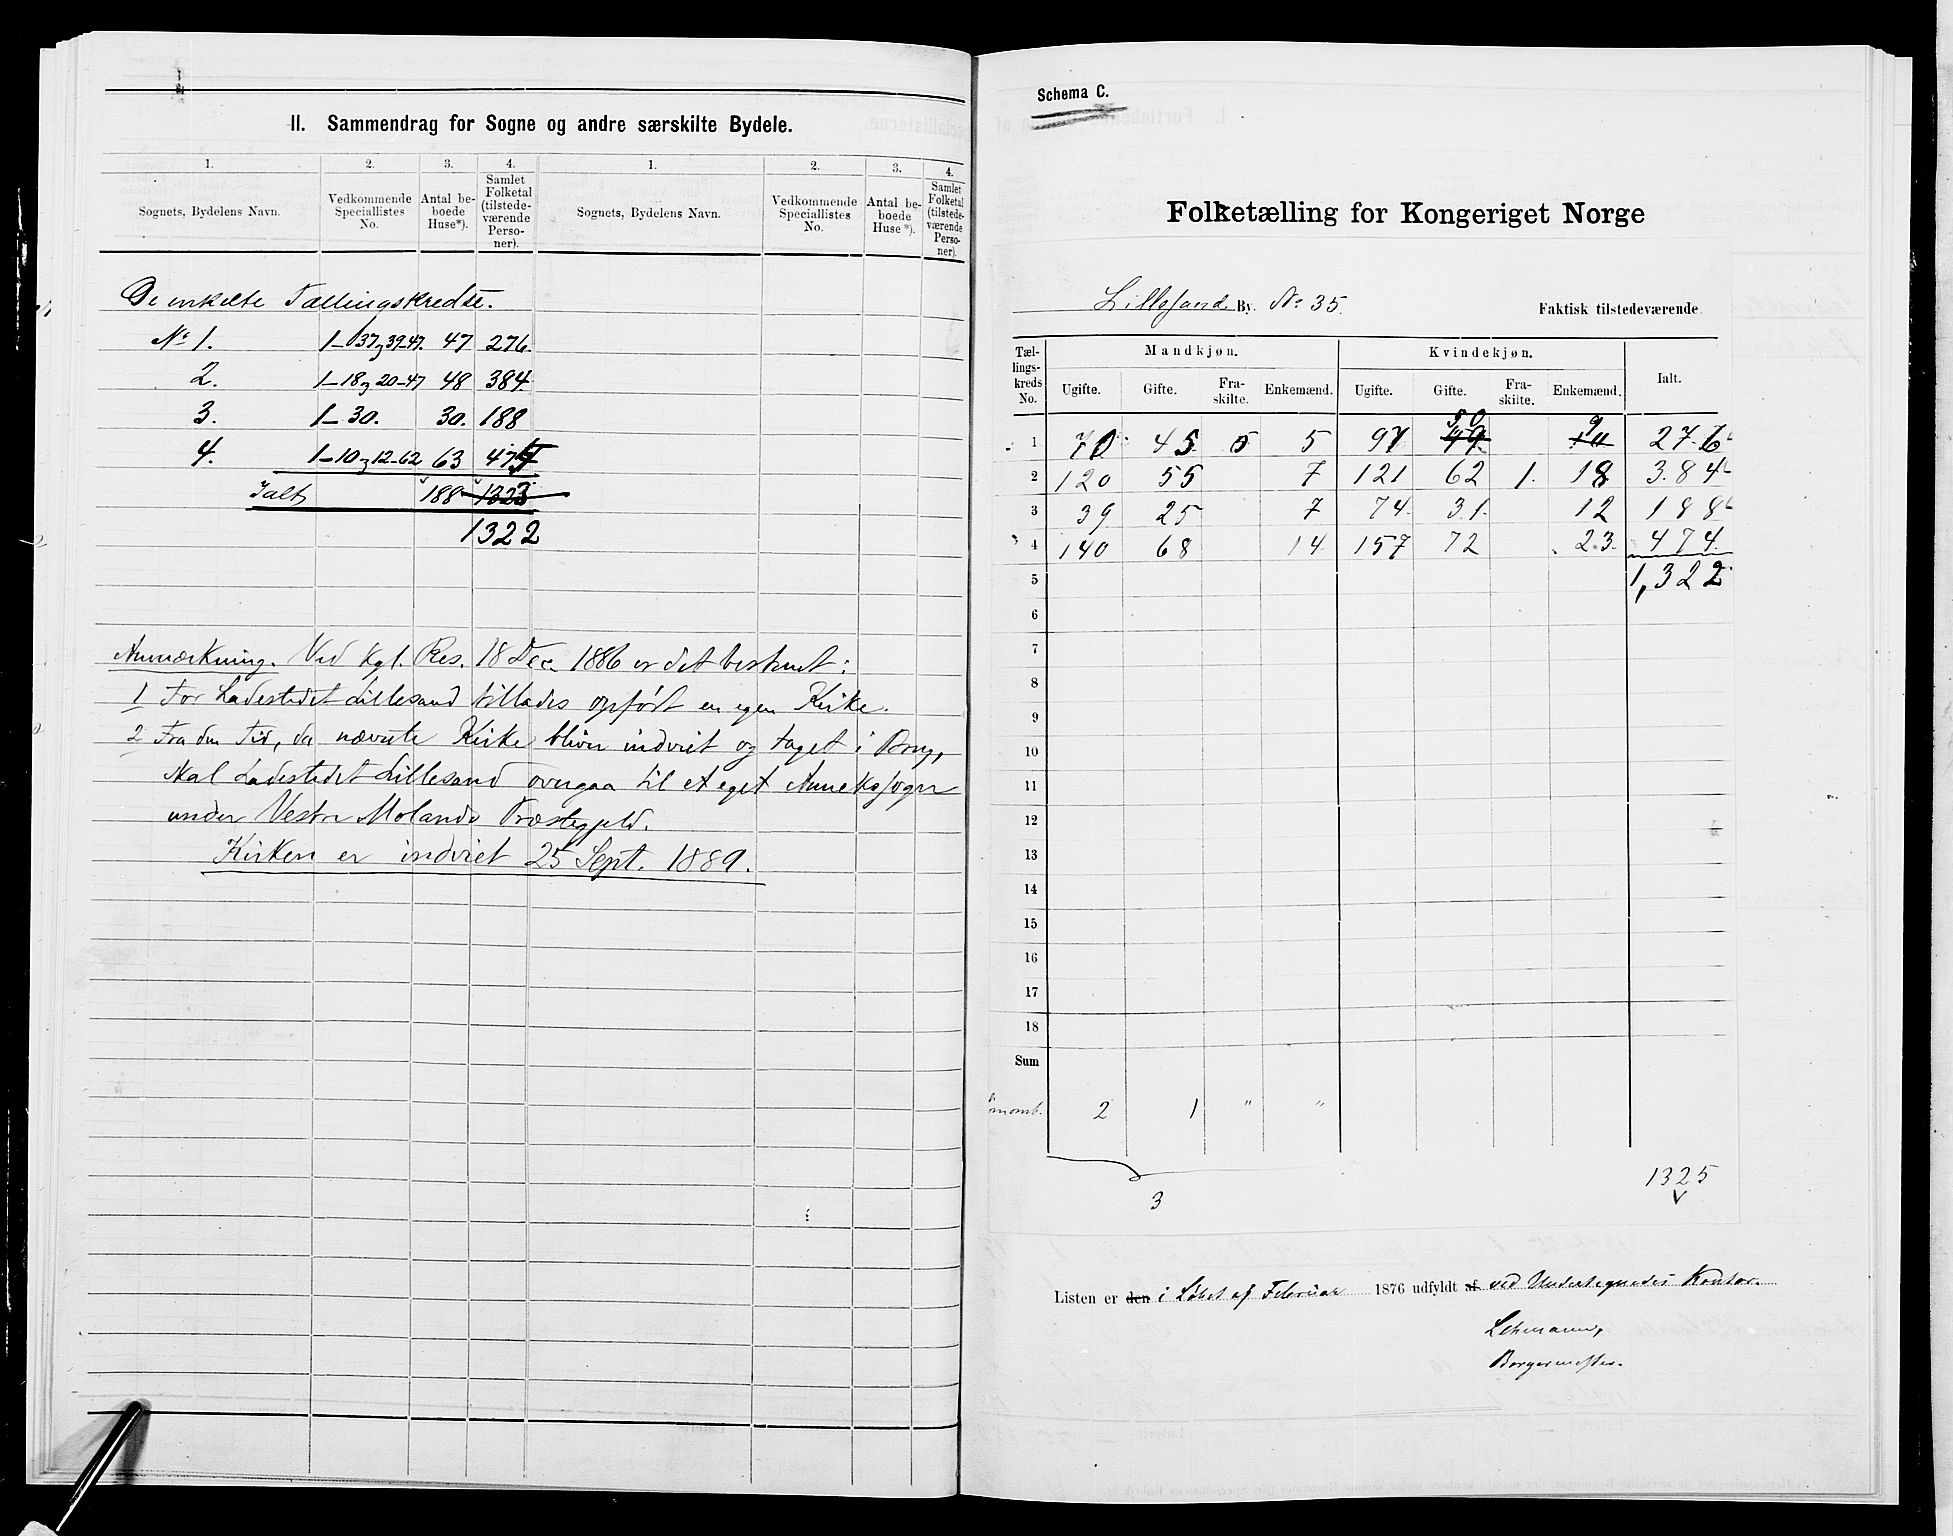 II. Sammendrag for Sogne og andre særskilte Bydele.
1. 2. 3. 4. 1. 2. 3. 4.
Sognets, Bydelens Navn. Vedkommende Speciallistes No. Antal beboede Huse*). Samlet Folketal (tilstedeværende Personer). Sognets, Bydelens Navn. Vedkommende Speciallistes No. Antal beboede Huse*). Samlet Folketal (tilstedeværende Personer).
De enkelte Tællingskredse.
No 1. 1-37 og 39-47. 47 276.
2. 1-18 og 20-47 48 384.
3. 1-30. 30. 188
4. 1-10 og 12-62 63 474
Ialt 188 1323
1322
Anmærkning. Ved Kgl. Res. 18 Dec. 1886 er det bestemt:
1 For Ladestedet Lillesand tillades opført en egen Kirke.
2 Fra den Tid, da nævnte Kirke bliver indviet og taget i Brug,
skal Ladestedet Lillesand overgaa til et eget Annekssogn
under Vestre Molands Præstegjeld.
Kirken er indviet 25 Sept. 1889.
Schema C.
Folketælling for Kongeriget Norge
Lillesand By. No 35. Faktisk tilstedeværende
Tællingskreds No. Mandkjøn. Kvindekjøn. Ialt.
Ugifte. Gifte. Fraskilte. Enkemænd. Ugifte. Gifte. Fraskilte. Enkemænd.
50 9
1 70 45 5 97 49 276
2 120 55 7 121 62 1. 18 384
3 39 25 7 74 31 12 188
4 140 68 14 157 72 23 474
5 1,322
6
7
8
9
10
11
12
13
14
15
16
17
18
Sum
2 1 " "
1325
3
Listen er den i Løbet af Februar 1876 udfyldt af ved Undertegnedes Kontor.
Lehmann,
Borgermester.